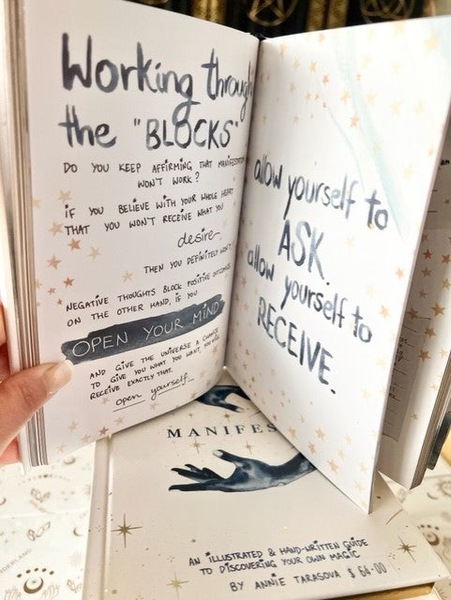 Working through
the "BLOCKS"
DO YOU KEEP AFFIRMING THAT
WON'T WORK?
IF YOU BELIEVE WITH YOUR WHOLE HEART
THAT YOU WON'T RECEIVE WHAT YOU
desire
THEN YOU DEFINITELY WON'T
NEGATIVE THOUGHTS BLOCK POSITIVE OUTCOMES
ON THE OTHER HAND, IF YOU
OPEN YOUR MIND
AND GIVE THE UNIVERSE A CHANCE
TO GIVE YOU WHAT YOU WANT, YOU WILL
RECEIVE EXACTLY THAT.
open yourself
allow yourself to
ASK.
allow yourself to
RECEIVE.
MANIFES
AN ILLUSTRATED & HAND-WRITTEN GUIDE
TO DISCOVERING YOUR OWN MAGIC
BY ANNIE TARASOVA $ 66.00